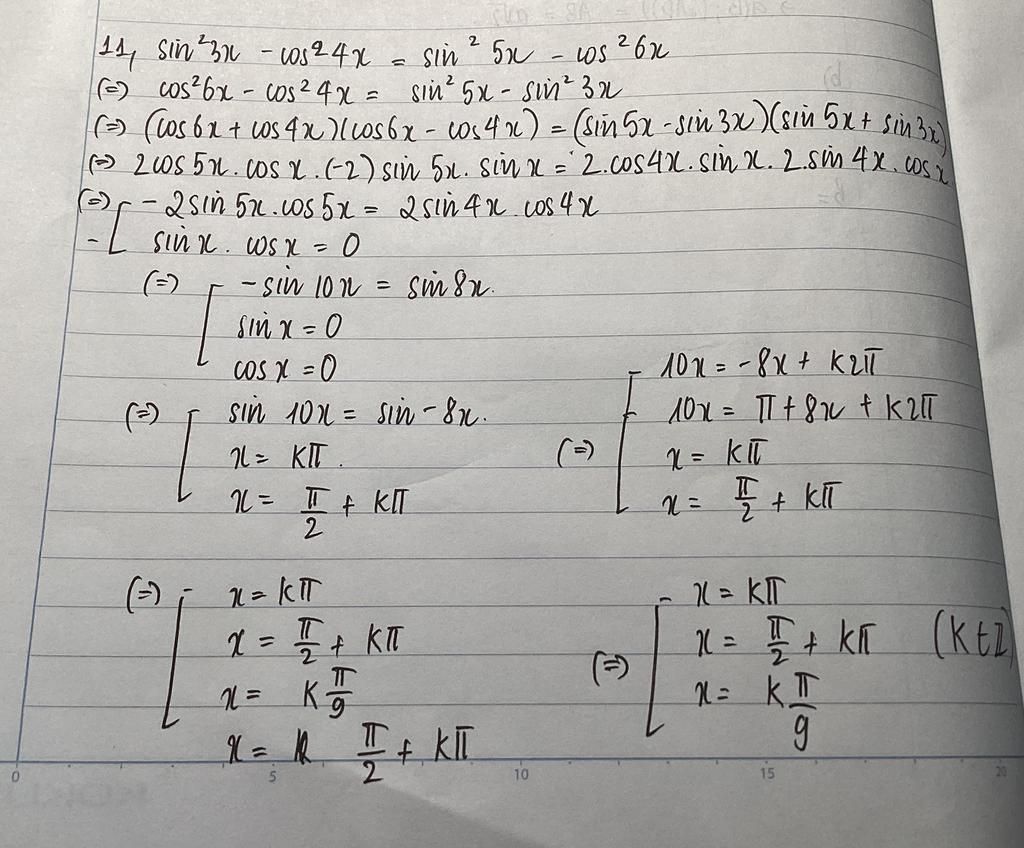 11, sin²3x - cos²4x = sin² 5x - cos²6x
(=) cos²6x - cos²4x = sin²5x - sin²3x
(=) (cos6x + cos4x)(cos6x - cos4x) = (sin5x - sin3x)(sin5x + sin3x)
(=) 2cos5x. cosx .(-2) sin5x. sinx = 2.cos4x. sinx. 2.sin4x. cosx
(=) [ -2sin5x.cos5x = 2sin4x.cos4x
- sinx. cosx = 0
(=) [ -sin10x = sin8x.
sinx = 0
cosx = 0
(=) [ sin 10x = sin -8x.
x = kπ.
x = π/2 + kπ
(=) [ 10x = -8x + k2π
10x = π + 8x + k2π
x = kπ
x = π/2 + kπ
(=) [ x = kπ
x = π/2 + kπ
x = k π/9
x = π/2 + kπ
(=) [ x = kπ
x = π/2 + kπ (k∈Z)
x = k π/9
0 5 10 15 20